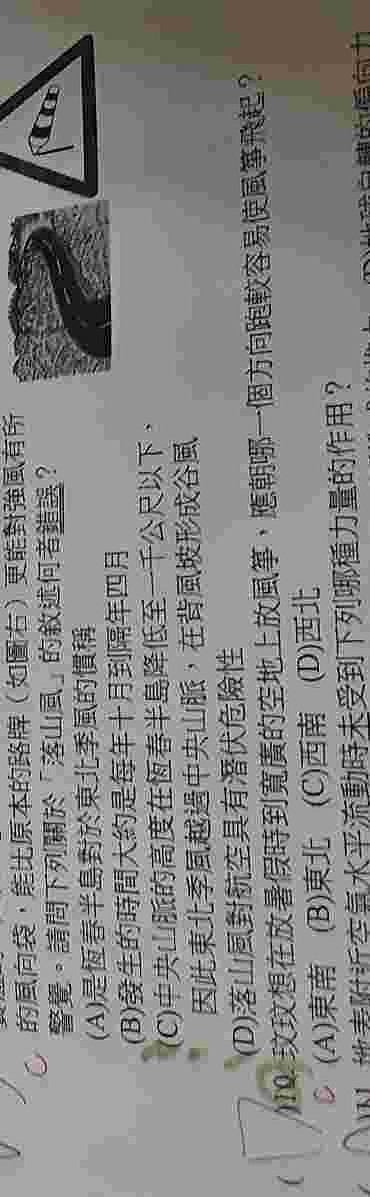 的風向袋，能比原本的路牌（如圖右）更能對強風有所
警覺。請問下列關於「落山風」的敘述何者錯誤？
(A)是恆春半島對於東北季風的慣稱
(B)發生的時間大約是每年十月到隔年四月
(C)中央山脈的高度在恆春半島降低至一千公尺以下，
因此東北季風越過中央山脈，在背風坡形成谷風
(D)落山風對航空具有潛伏危險性
C
)10. 玟玟想在放暑假時到寬廣的空地上放風箏，應朝哪一個方向跑較容易使風箏飛起？
(A)東南 (B)東北 (C)西南 (D)西北
C
地表附近空氣水平流動時未受到下列哪種力量的作用？